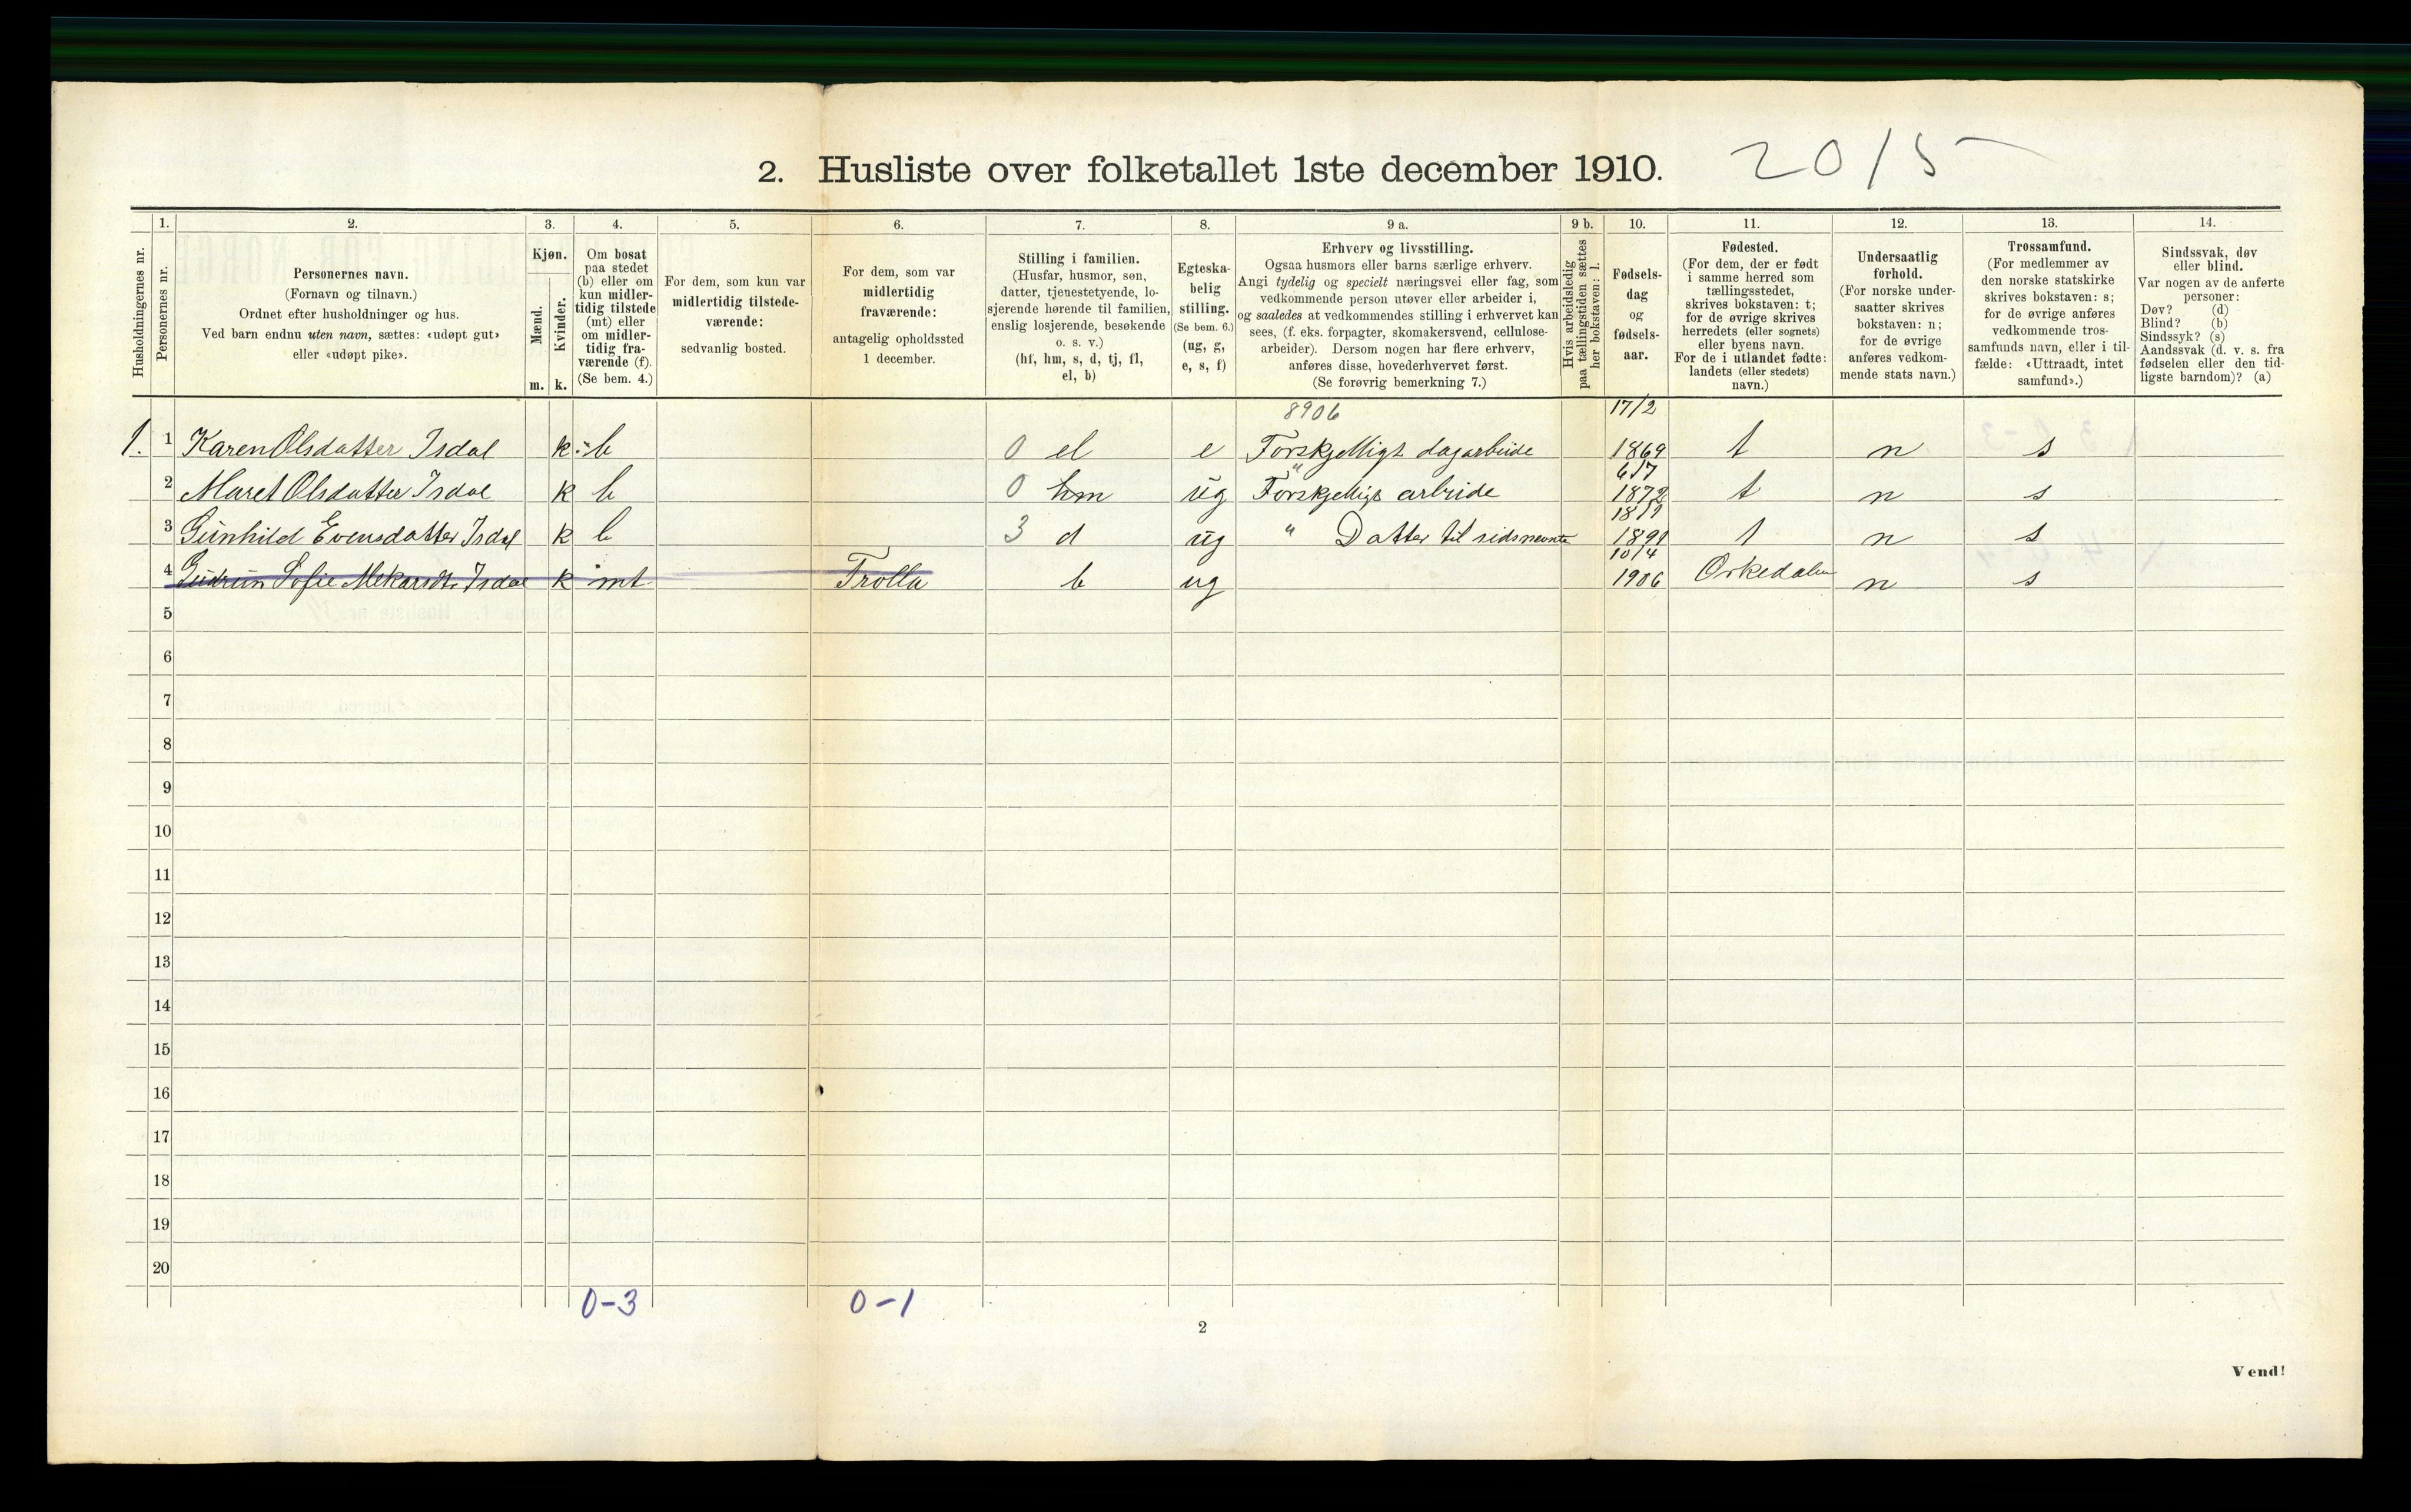 2. Husliste over folketallet 1ste december 1910. 2015
1. 2. 3. 4. 5. 6. 7. 8. 9 a. 9 b. 10. 11. 12. 13. 14.
Husholdningernes nr.
Personernes nr.
Personernes navn.
(Fornavn og tilnavn.)
Ordnet efter husholdninger og hus.
Ved barn endnu uten navn, sættes: «udøpt gut»
eller «udøpt pike».
Kjøn.
Mænd.
Kvinder.
m. k.
Om bosat
paa stedet
(b) eller om
kun midler-
tidig tilstede
(mt) eller
om midler-
tidig fra-
værende (f).
(Se bem. 4.)
For dem, som kun var
midlertidig tilstede-
værende:
sedvanlig bosted.
For dem, som var
midlertidig
fraværende:
antagelig opholdssted
1 december.
Stilling i familien.
(Husfar, husmor, søn,
datter, tjenestetyende, lo-
sjerende hørende til familien,
enslig losjerende, besøkende
o. s. v.)
(hf, hm, s, d, tj, fl,
el, b)
Egteska-
belig
stilling.
(Se bem. 6.)
(ug, g,
e, s, f)
Erhverv og livsstilling.
Ogsaa husmors eller barns særlige erhverv.
Angi tydelig og specielt næringsvei eller fag, som
vedkommende person utøver eller arbeider i,
og saaledes at vedkommendes stilling i erhvervet kan
sees, (f. eks. forpagter, skomakersvend, cellulose-
arbeider). Dersom nogen har flere erhverv,
anføres disse, hovederhvervet først.
(Se forøvrig bemerkning 7.)
Hvis arbeidsledig
paa tællingstiden sættes
her bokstaven: l.
Fødsels-
dag
og
fødsels-
aar.
Fødested.
(For dem, der er født
i samme herred som
tællingsstedet,
skrives bokstaven: t;
for de øvrige skrives
herredets (eller sognets)
eller byens navn.
For de i utlandet fødte:
landets (eller stedets)
navn.)
Undersaatlig
forhold.
(For norske under-
saatter skrives
bokstaven: n;
for de øvrige
anføres vedkom-
mende stats navn.)
Trossamfund.
(For medlemmer av
den norske statskirke
skrives bokstaven: s;
for de øvrige anføres
vedkommende tros-
samfunds navn, eller i til-
fælde: «Uttraadt, intet
samfund».)
Sindssvak, døv
eller blind.
Var nogen av de anførte
personer:
Døv? (d)
Blind? (b)
Sindssyk? (s)
Aandssvak (d. v. s. fra
fødselen eller den tid-
ligste barndom)? (a)
8906 17/2
1. 1 Karen Olsdatter Isdal k b 0 el e Forskjelligt dagarbeide 1869 t n s
6/7
2 Maret Olsdatter Isdal k b 0 hm ug Forskjelligt arbeide 1872 t n s
18/1
3 Gunhild Evensdatter Isdal k b 3 d ug " Datter til sidsnevnte 1891 t n s
10/4
4 Gudrun Sofie Isdal k mt Trolla b ug 1906 Orkedalen n s
5
6
7
8
9
10
11
12
13
14
15
16
17
18
19
20
0-3 0-1
2
Vend!